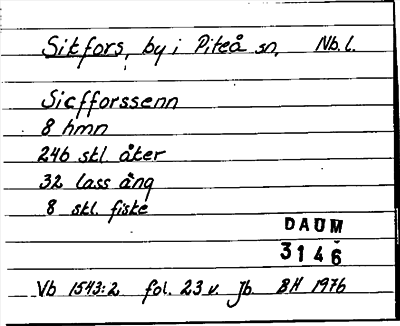 Sikfors, by i Piteå sn, Nb.l.
Sicfforssenn
8 hmn
246 skl. åker
32 lass äng
8 skl. fiske
DAUM
3146
Vb 1543:2 fol. 23 v. Jb. BH 1976